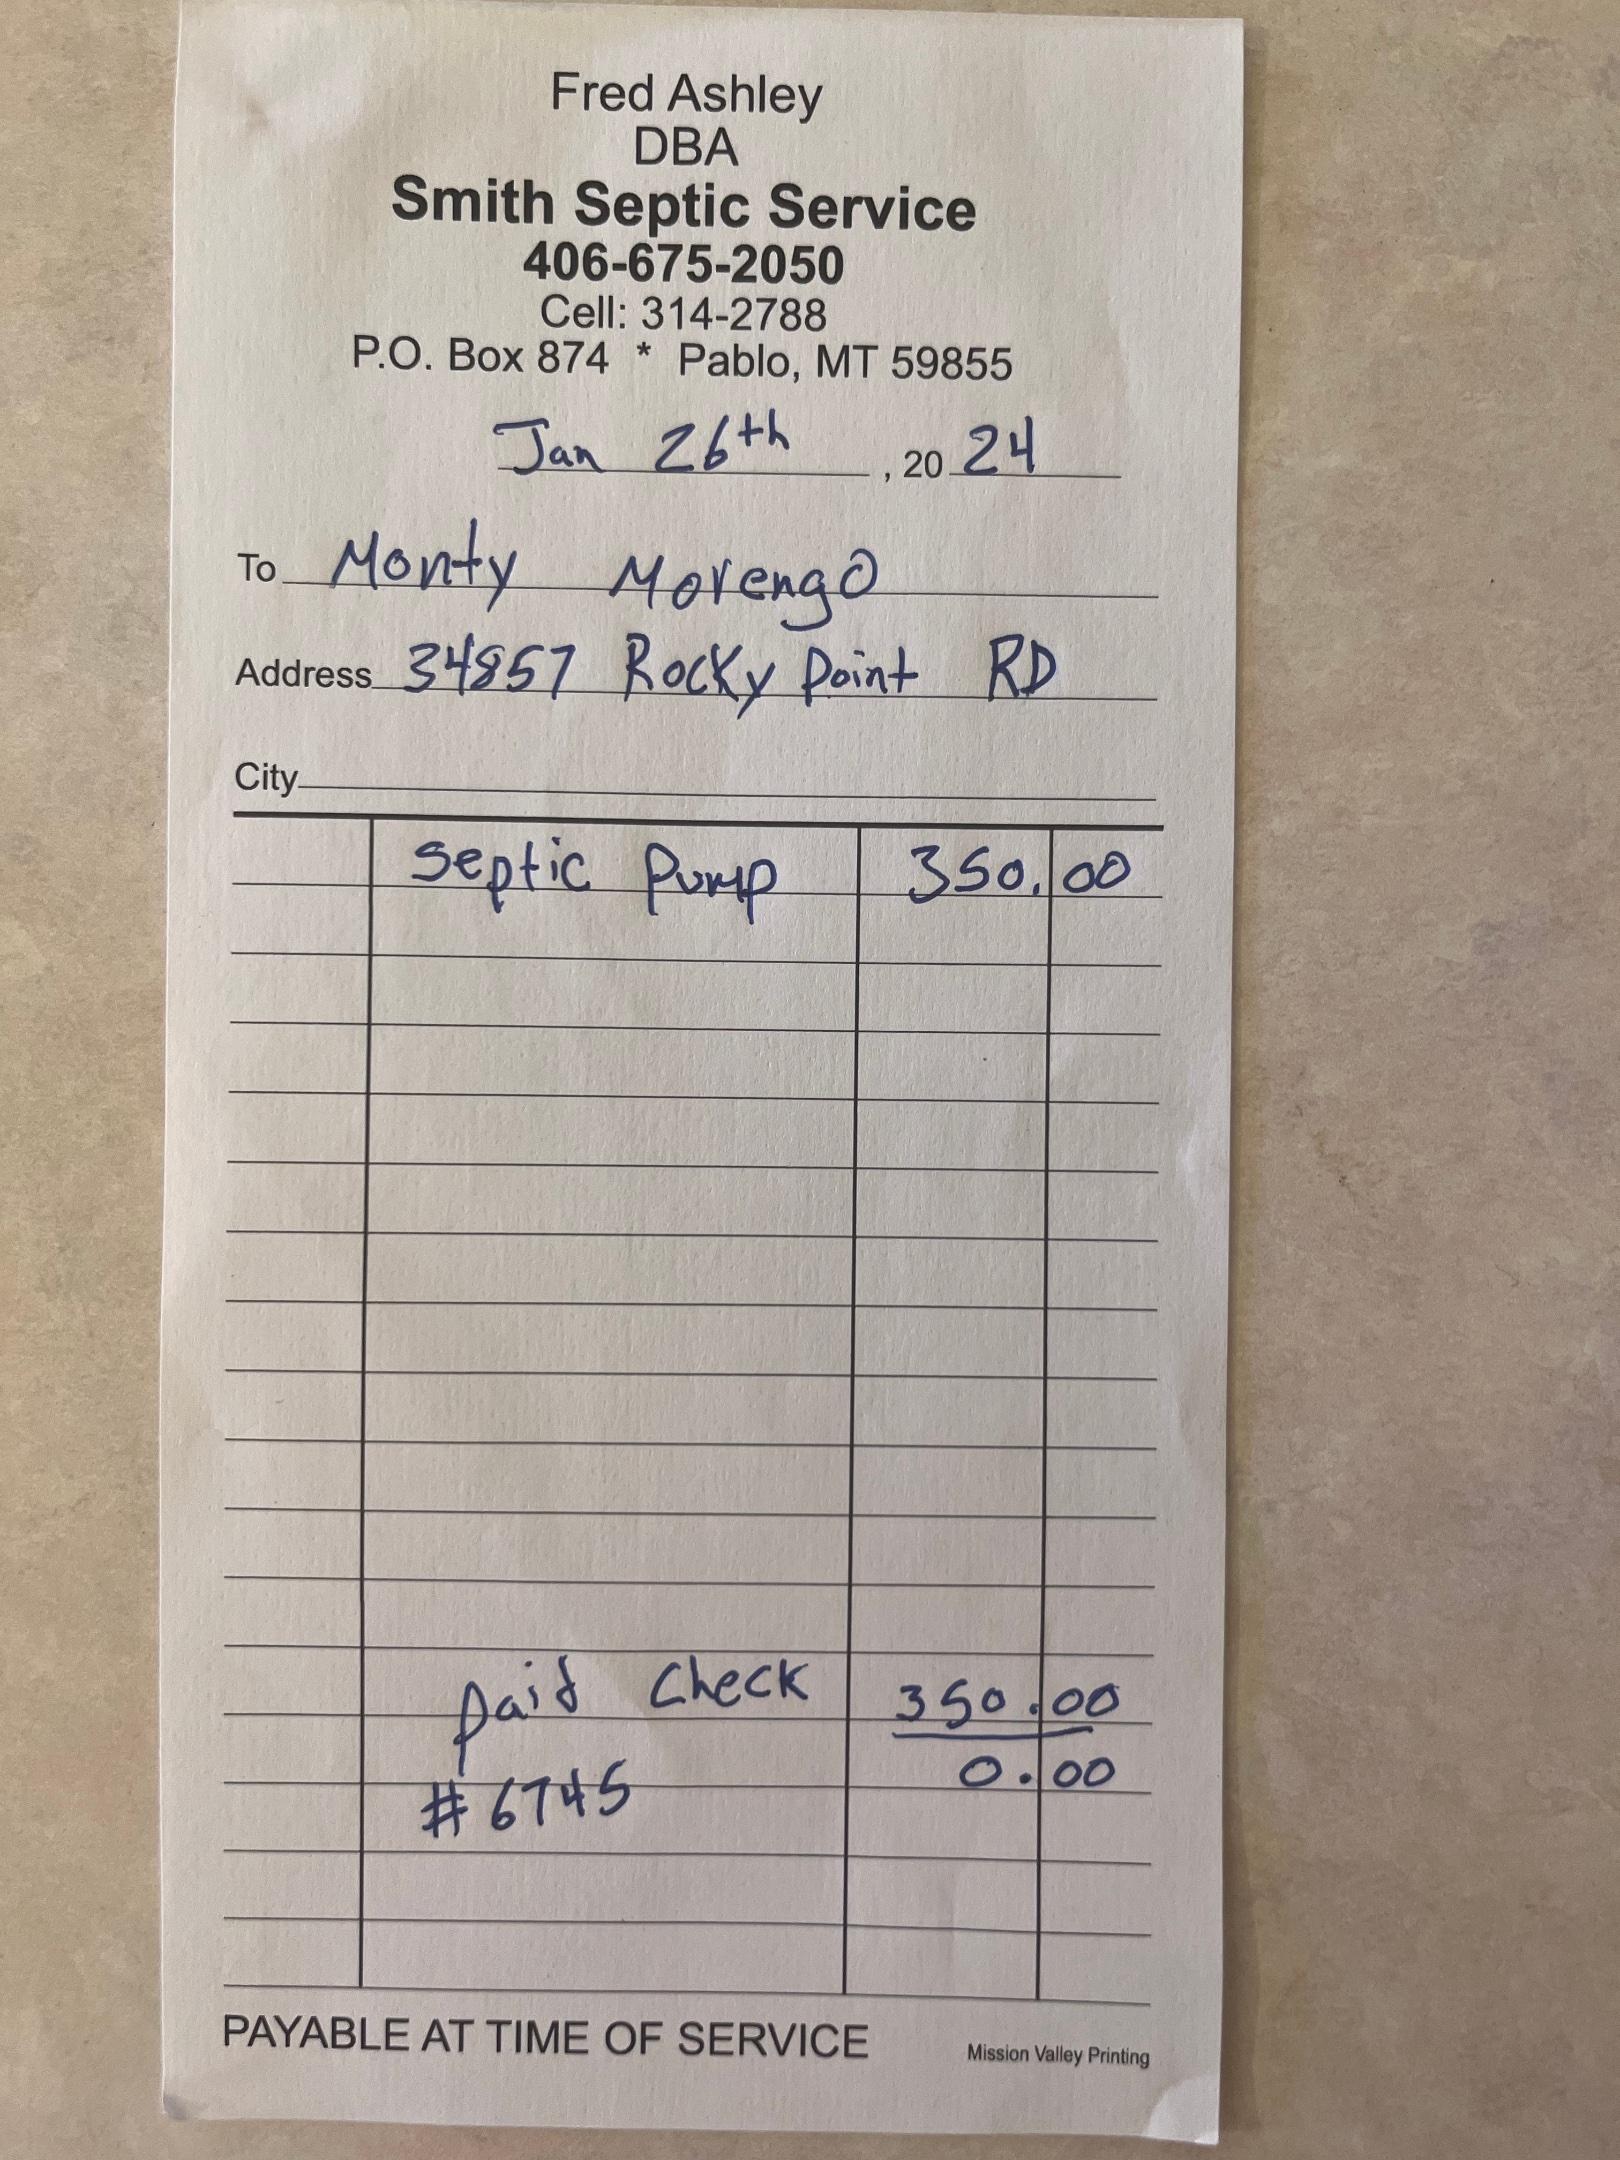 Fred Ashley
DBA
Smith Septic Service
406-675-2050
Cell: 314-2788
P.O. Box 874 * Pablo, MT 59855
Jan 26th, 2024
To Monty Morengo
Address 34857 Rocky Point RD
City
Septic Pump 350.00
paid Check 350.00
0.00
#6745
PAYABLE AT TIME OF SERVICE
Mission Valley Printing